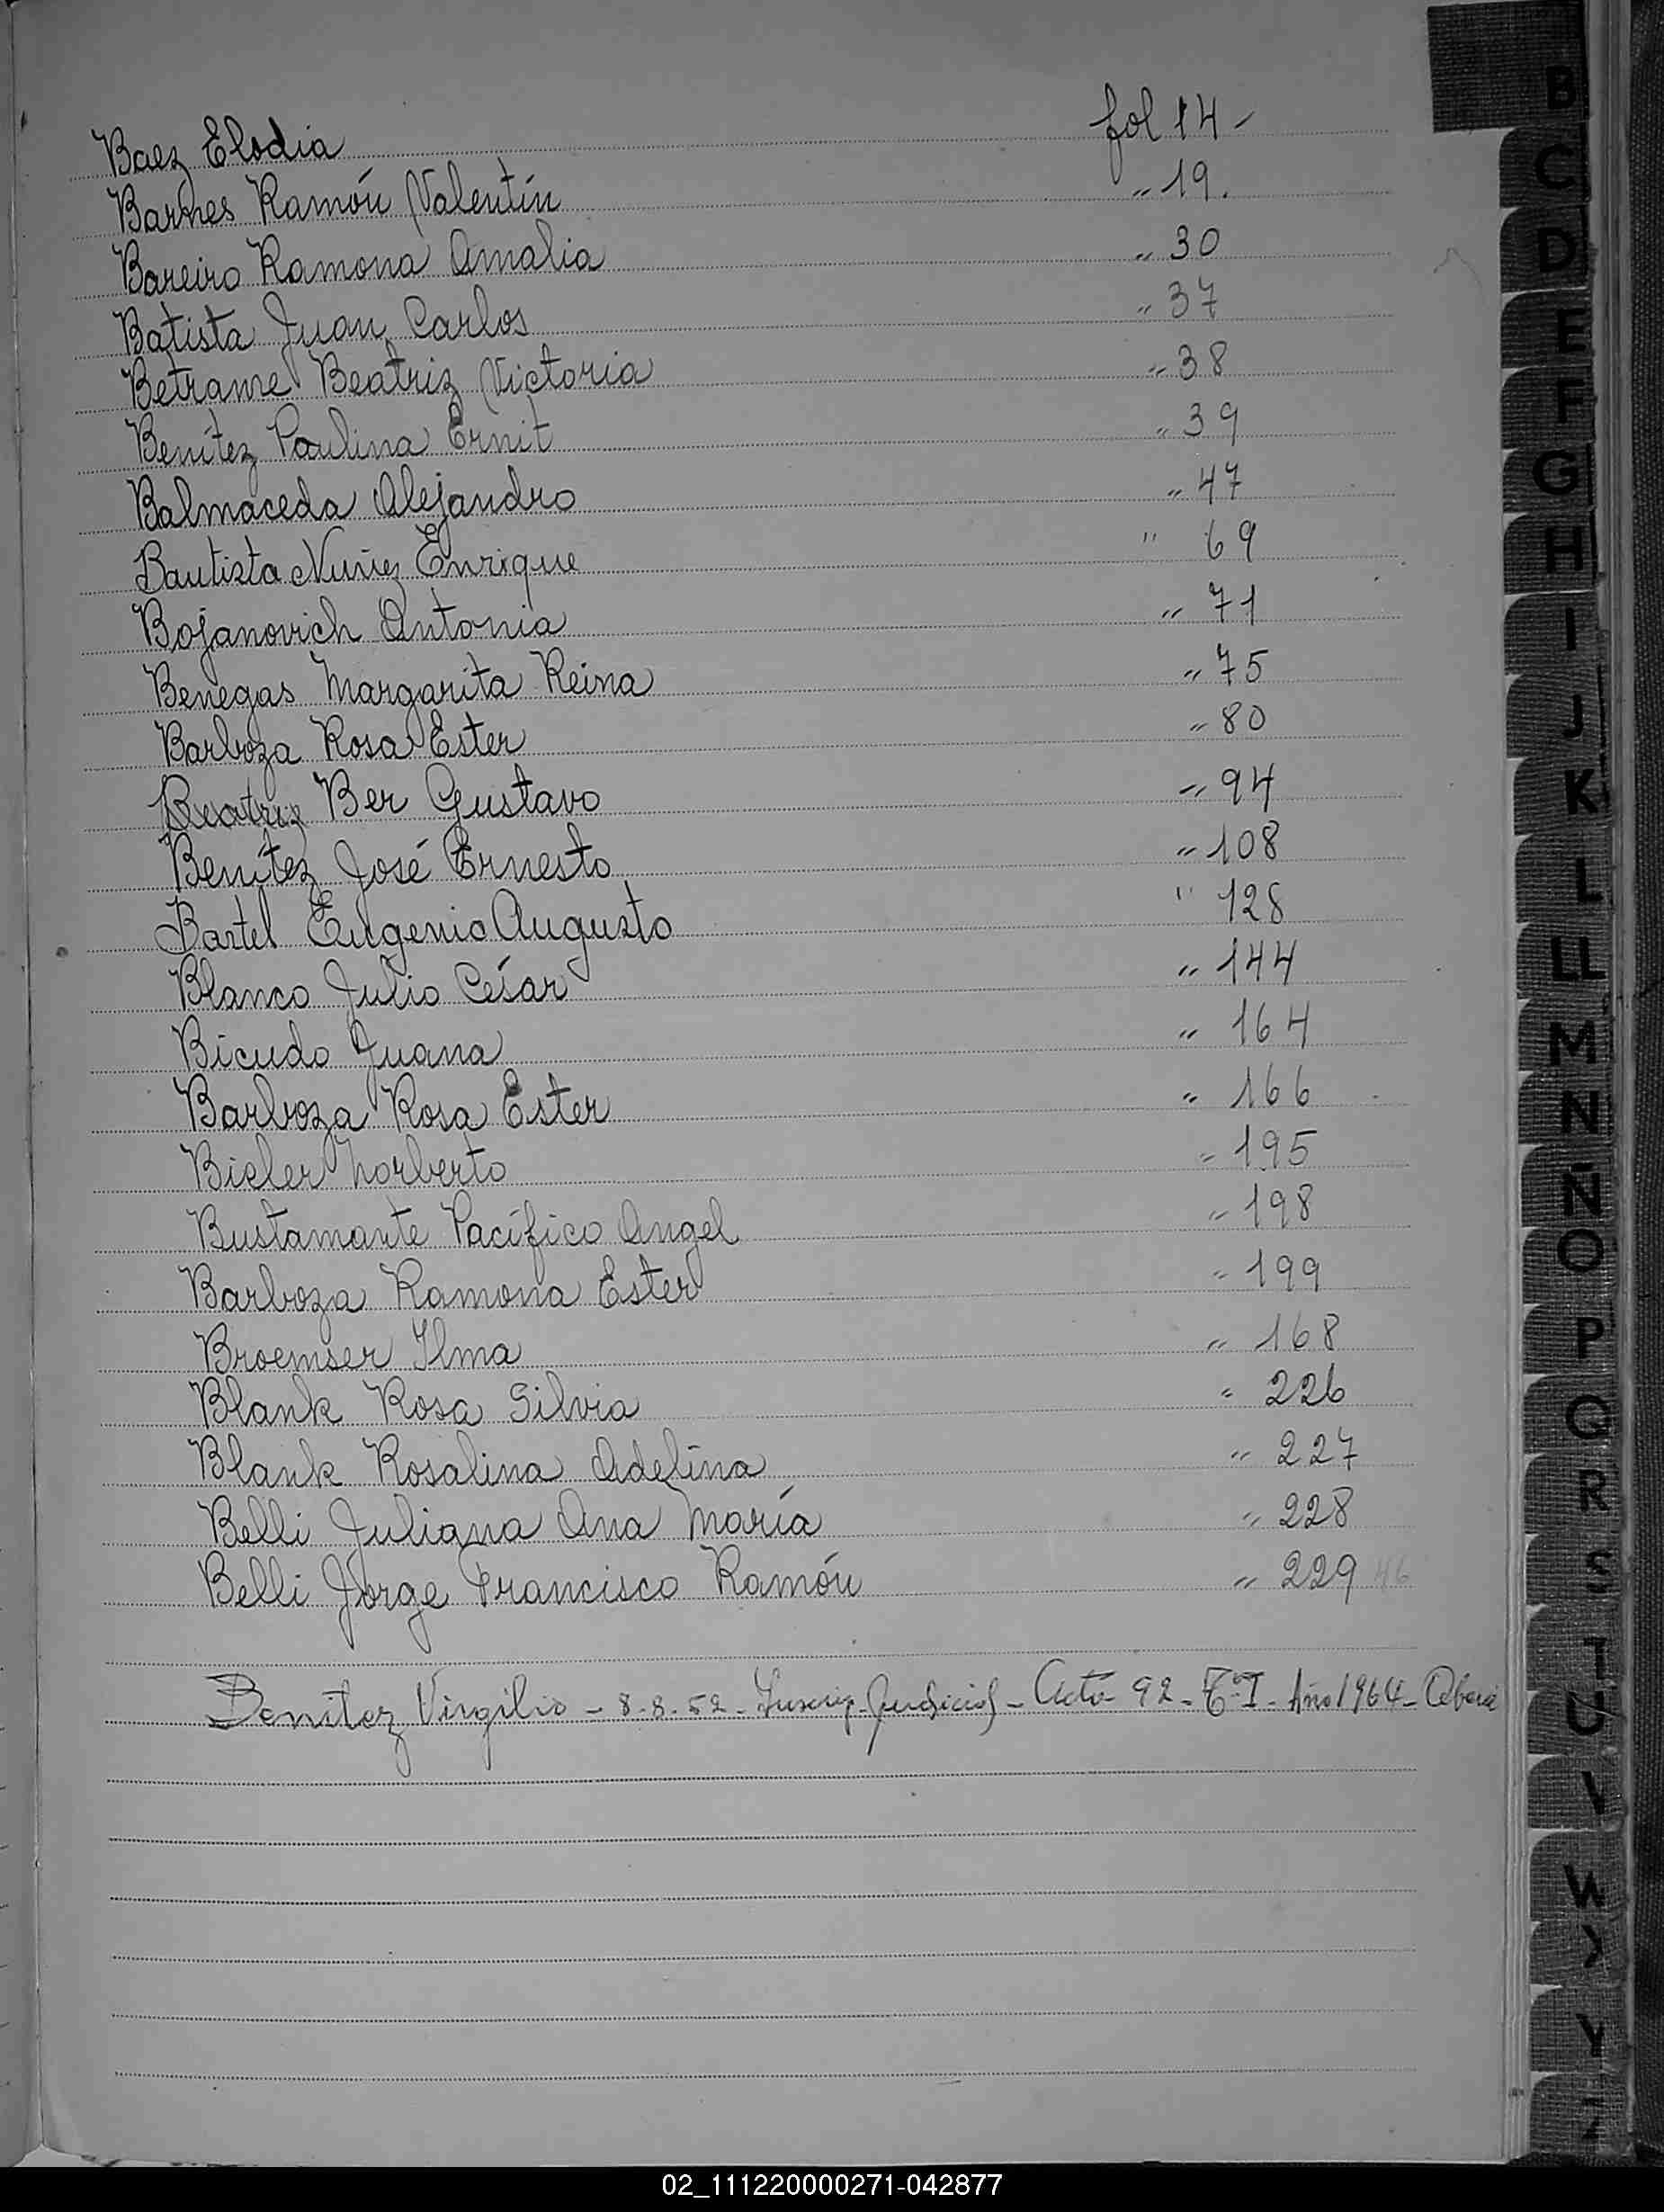 Baez Elodia fol 14 -
Barnes Ramón Valentín " 19.
Bareiro Ramona Amalia " 30
Batista Juan Carlos " 37
Betrame Beatriz Victoria " 38
Benítez Paulina Ernit " 39
Balmaceda Alejandro " 47
Bautista Nuñez Enrique " 69
Bojanovich Antonia " 71
Benegas Margarita Reina " 75
Barboza Rosa Ester " 80
Beatriz Ber Gustavo " 94
Benítez José Ernesto " 108
Bartel Eugenio Augusto " 128
Blanco Julio César " 144
Bicudo Juana " 164
Barboza Rosa Ester " 166
Bieler Norberto " 195
Bustamante Pacífico Angel " 198
Barboza Ramona Ester " 199
Broemser Ilma " 168
Blank Rosa Silvia " 226
Blank Rosalina Adelina " 227
Belli Juliana Ana María " 228
Belli Jorge Francisco Ramón " 229 46
Benitez Virgilio - 8-8-52 - Inscrip. Judicial - Acta 92 - T° I - Año 1964 -
B
C
D
E
F
G
H
I
J
K
L
LL
M
N
Ñ
O
P
Q
R
S
T
U
V
W
X
Y
Z
02_111220000271-042877